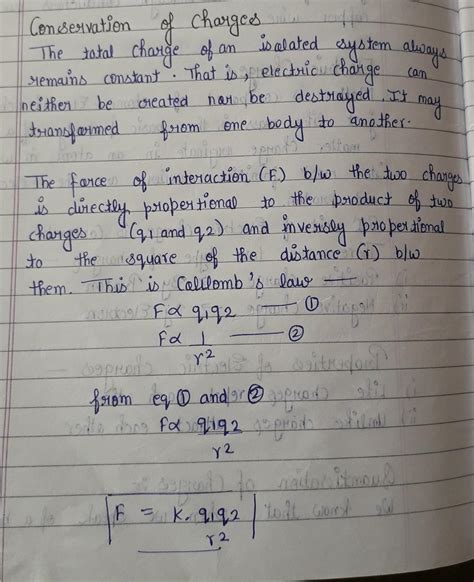 Conservation of Charges
The total charge of an isolated system always
remains constant. That is, electric charge can
neither be created nor be destrayed. It may
transformed from one body to another.
The force of interaction (F) b/w the two charges
is directly propertional to the product of two
charges (q1 and q2) and inversly propertional
to the square of the distance (r) b/w
them. This is Coulomb's law —
F∝ q1q2 —— ①
F∝ 1/r2 —— ②
from eq ① and ②
F∝ q1q2/r2
F = K. q1q2/r2